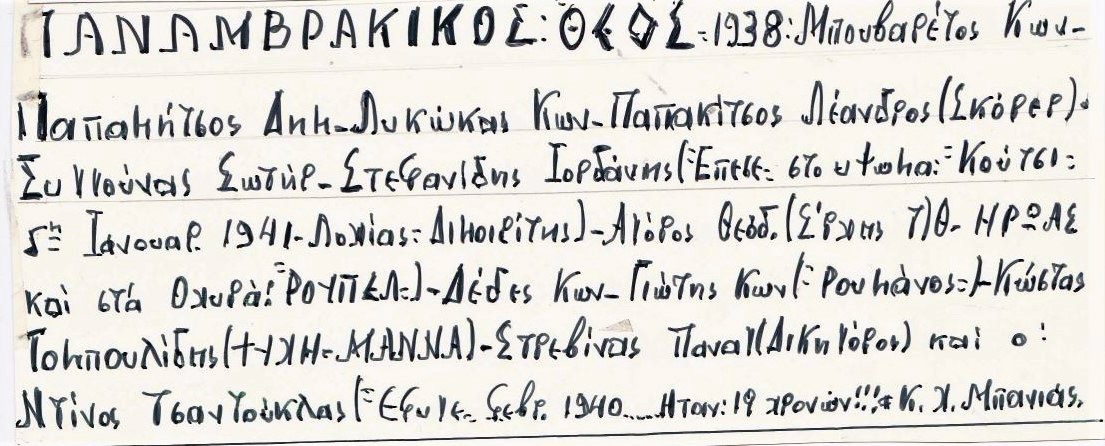 ΠΑΝΑΜΒΡΑΚΙΚΟΣ: ΘΕΟΣ = 1938: Μπουβαρέτος Κων-
Παπαμήτσος Δημ-Λυκώκας Κων-Παπακίτσος Λέανδρος (Σκόρερ).
Συγγούνας Σωτήρ-Στεφανίδης Ιορδάνης (Έπεσε στο υψωμα: Κούτσι:
5η Ιανουαρ. 1941-Λοχίας=Διμοιρίτης)-Αγόρος Θεόδ. (Σ/ρχης Τ)Θ-ΗΡΩΑΣ
καί στά Οχυρά: ΡΟΥΠΕΛ=)-Δέδες Κων-Γιώτης Κων (=Ρουμάνος=)-Κώστας
Τομπουλίδης (+ΥΧΗ-ΜΑΝΝΑ)-Στρεβίνας Παναγ (Δικηγόρος) καί ο:
Ντίνος Τσαντούκλας (=Εφυγε Φεβρ. 1940.....Ηταν: 19 χρονών!!!* Κ. Χ. Μπανιάς.